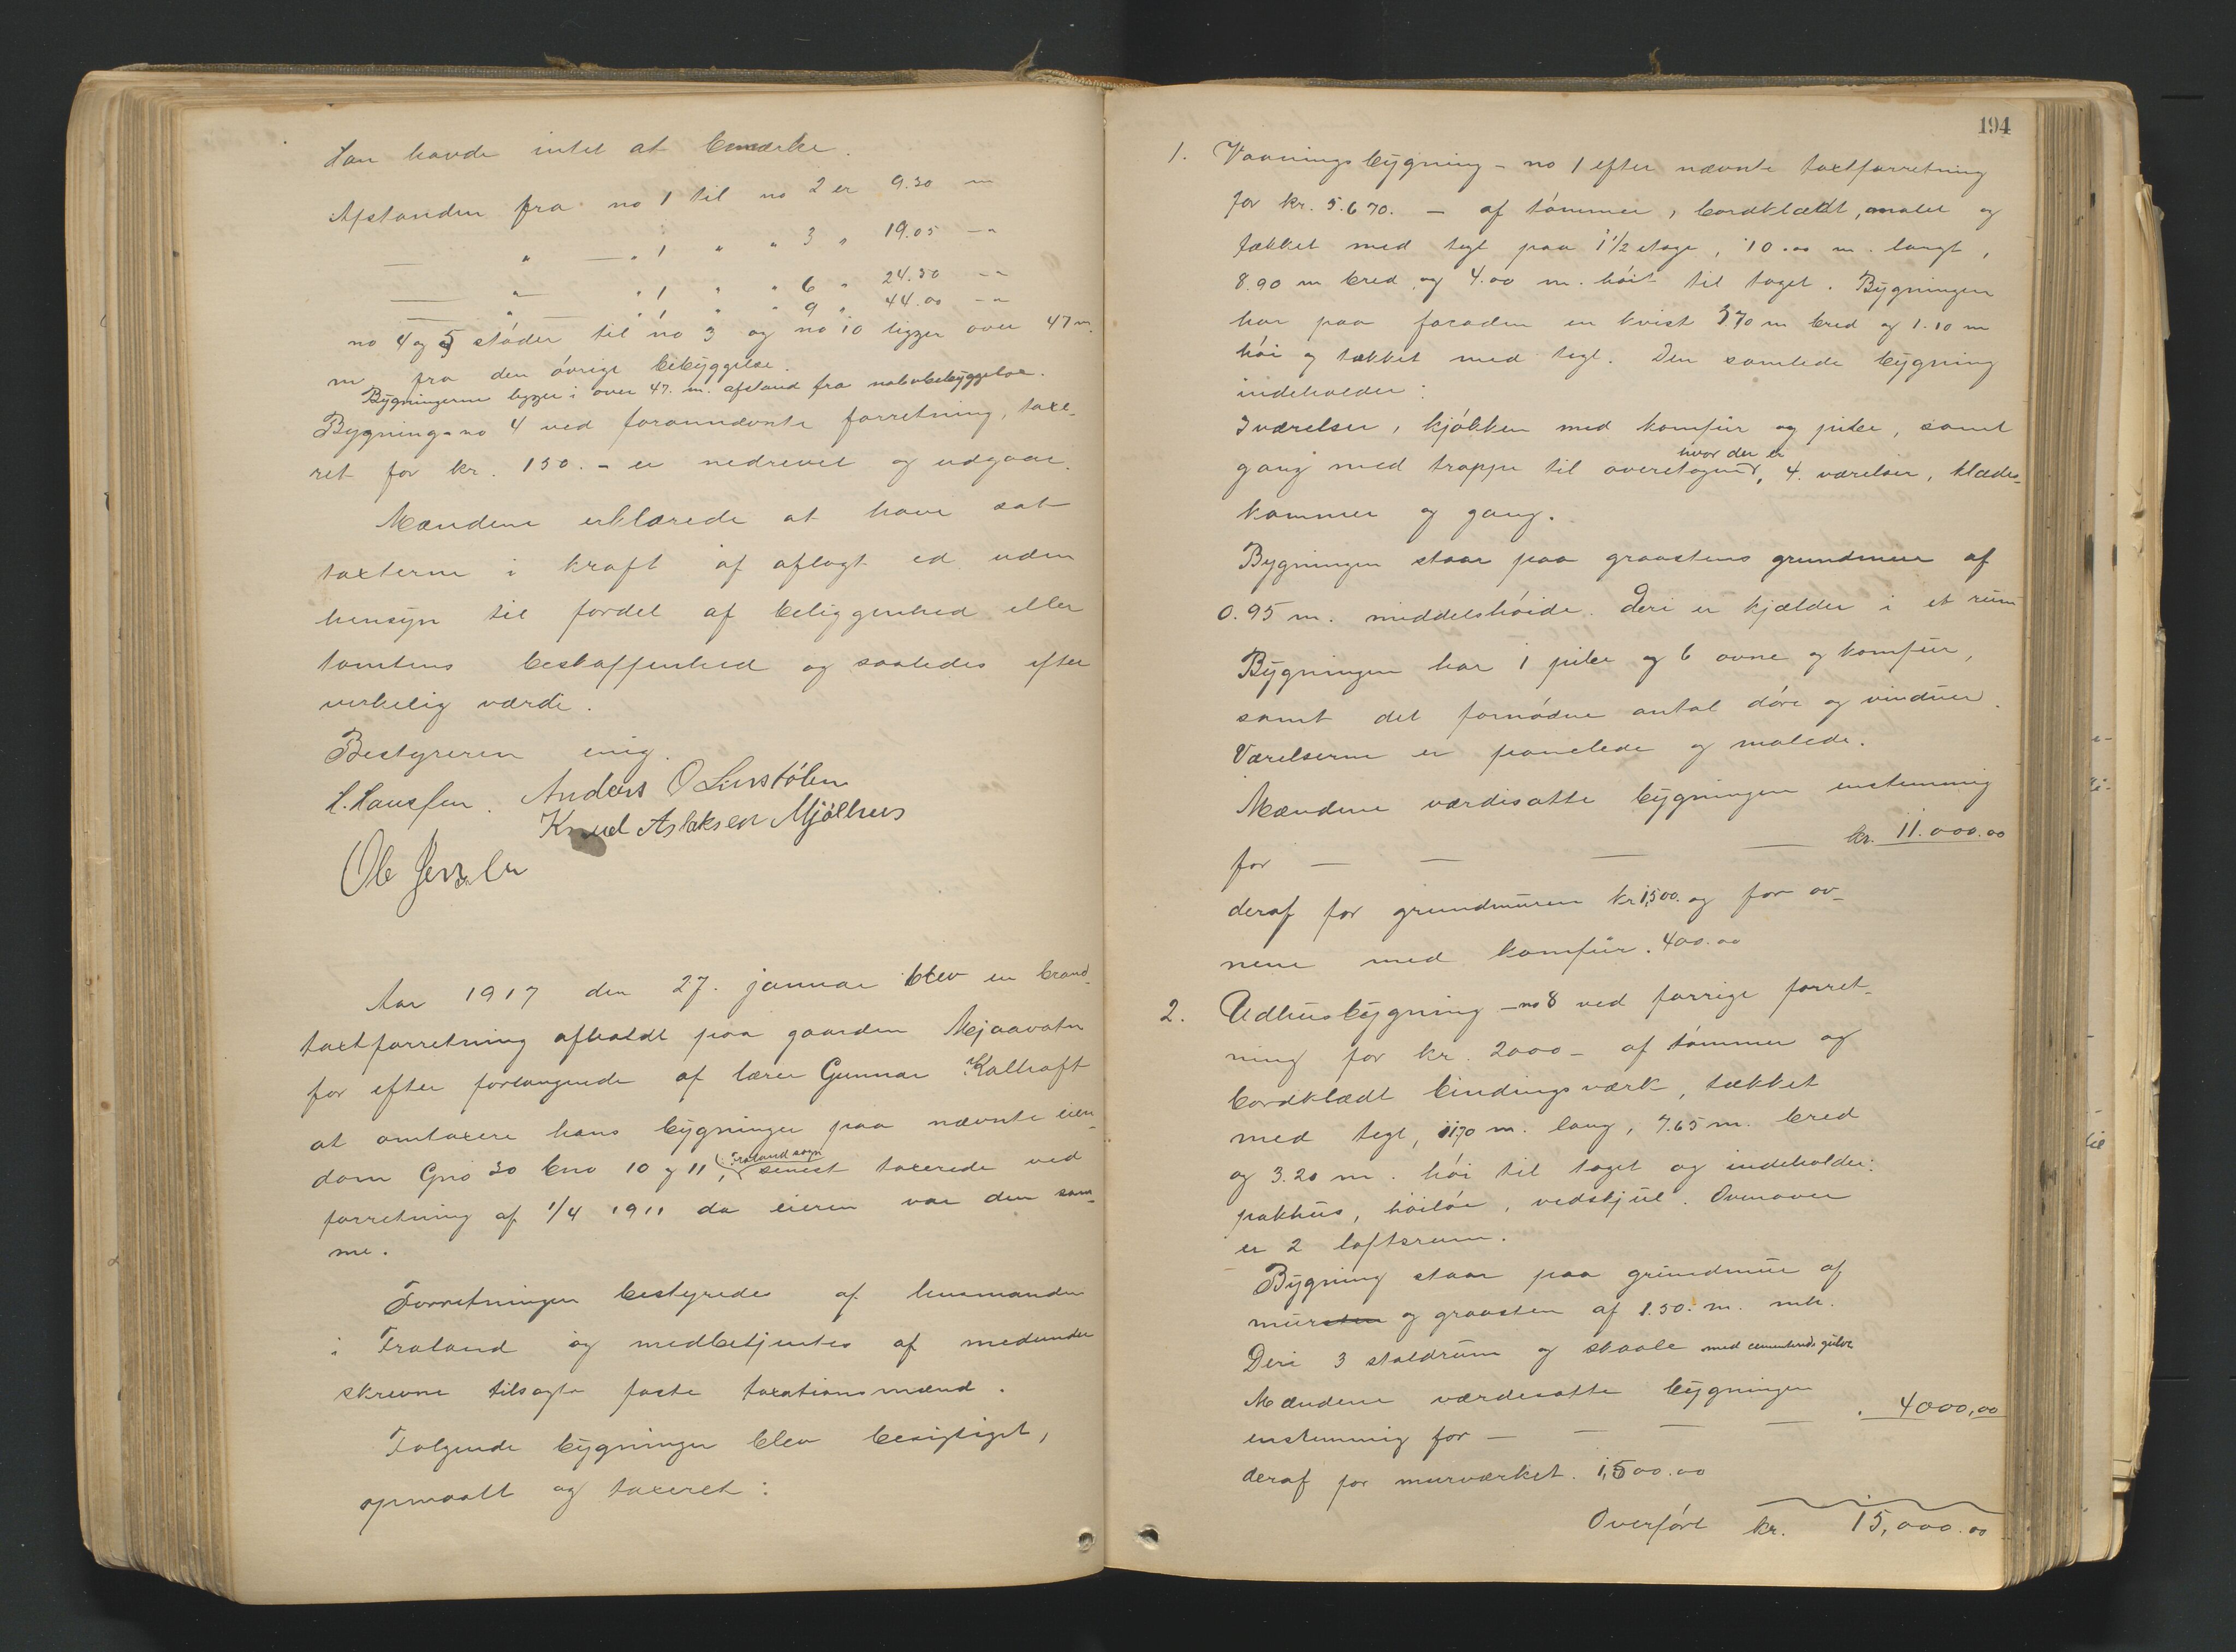 Han havde intet at bemærke.
Afstanden fra no 1 til no 2 er 9.30 m
— " — " 1 " " 3 " 19.05 — "
— " — " 1 " " 6 " 24.50 — "
— " — " 1 " " 9 " 44.00 — "
no 4 og 5 støder til no 3 og no 10 ligger over 47 m.
m fra den øvrige bebyggelse.
Bygningerne ligger i over 47. m. afstand fra nabobebyggelse.
Bygning no 4 ved forannævnte forretning, taxe-
ret for kr. 150.- er nedrevet og udgaar.
Mændene erklærede at have sat
taxterne i kraft af aflagt ed uden
hensyn til fordel af beliggenhed eller
tomtens beskaffenhed og saaledes efter
virkelig værdi.
Bestyreren enig.
H. Hansen. Anders O
Knud Aslaksen Mjølhus
Ole Jensen
Aar 1917 den 27. januar blev en brand-
taxtforretning afholdt paa gaarden Mjaavatn
for efter forlangende af lærer Gunnar Kalhaft
at omtaxere hans bygninger paa nævnte eien-
dom Gno 30 bno 10 og 11, Froland sogn senest taxerede ved
forretning af 1/4 1911 da eieren var den sam-
me.
Forretningen bestyredes af lensmanden
i Froland og medbetjentes af medunder
skrevne tilsagte faste taxationsmænd.
Følgende bygninger blev besigtiget,
opmaalt og taxeret:
194
1. Vaaningsbygning - no 1 efter nævnte taxtforretning
for kr. 5.670. — af tømmer, bordklædt, malet og
tækket med tegl paa 1 1/2 etage, 10.00 m. langt,
8.90 m bred og 4.00 m. høit til taget. Bygningen
har paa facaden en kvist 370 m bred og 1.10 m
høi og tækket med tegl. Den samlede bygning
indeholder:
3 værelser, kjøkken med komfur og pibe, samt
gang med trappe til overetagen hvor der er, 4. værelser, klædes-
kammer og gang.
Bygningen staar paa graastens grundmur af
0.95 m. middelshøide. Deri er kjælder i et rum
Bygningen har 1 pibe og 6 ovne og komfur,
samt det fornødne antal døre og vinduer.
Værelserne er panelede og malede.
Mændene værdisatte bygningen enstemmig
for — — — — kr. 11.000.00
deraf for grundmuren kr 1,500. og for ov-
nene med komfur. 400.00
2. Udhusbygning — no 8 ved forrige forret-
ning for kr. 2000 - af tømmer og
bordklædt bindingsværk, tækket
med tegl, 11.70 m. lang, 7.65 m. bred
og 3.20 m. høi til taget og indeholder:
pakhus, høilør, vedskjul. Ovenover
er 2 loftsrum.
Bygning staar paa grundmur af
mursten og graasten af 1.50. m. mh.
Deri 3 staldrum og skaale med cementerede gulve
Mændene værdisatte bygningen
enstemmig for — — — — . 4000,00
deraf for murværket. 1,500.00
Overført kr. 15,000.00